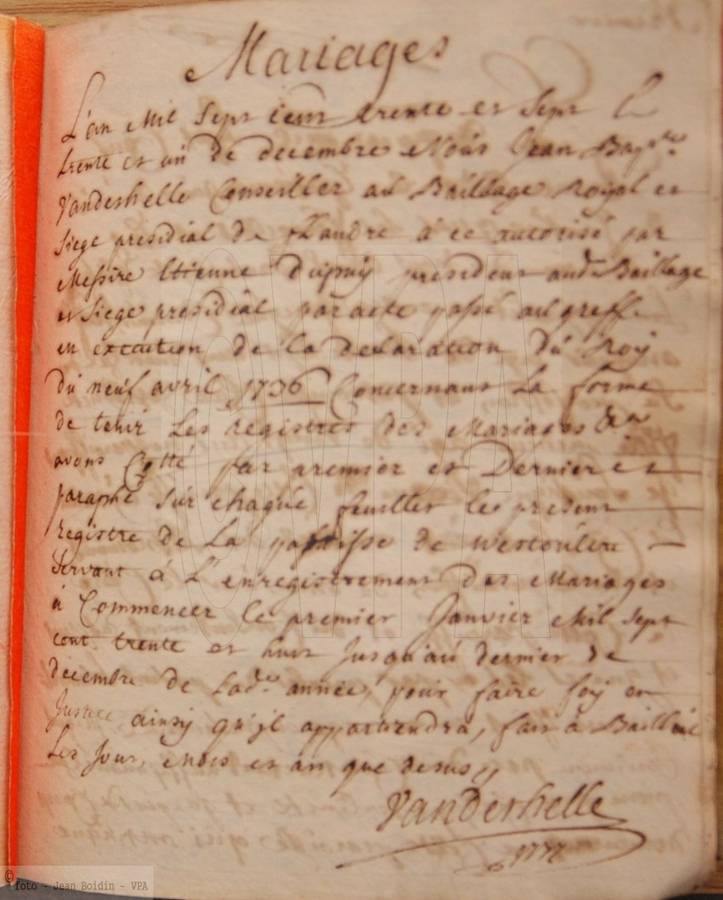 Mariages
L'an Mil Sept cent trente et sept le
trente et un de decembre Nous Jean Bapte
Vanderhelle Conseiller au Bailliage Royal et
siege presidial de flandre a ce autorisé par
Messire Etienne Dupuy president audt Bailliage
et siege presidial par acte passé au greffe
en execution de la declaration du Roy
du neuf avril 1736 Concernant la forme
de tenir les registres des Mariages &a
avons Cotté par premier et Dernier et
paraphé sur chaque feuillet le present
registre de la paroisse de westoutere
servant a l'enregistrement des Mariages
a Commencer le premier Janvier Mil sept
cent trente et huit jusqu'au dernier de
decembre de ladte année, pour faire foy en
Justice ainsy qu'il appartiendra, fait a Bailleul
les Jour, mois et an que desus,,
Vanderhelle
1737
© foto - Jean Boidin - VPA
VPA